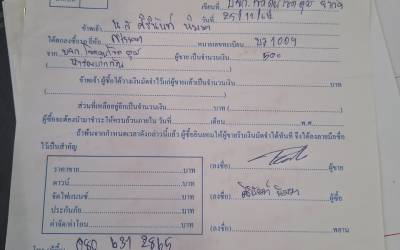 เขียนที่
วันที่ 25/11/64
ข้าพเจ้า น.ส ศิรินันท์
ได้ตกลงซื้อ หมายเลขทะเบียน 1009
จาก ผู้ขาย เป็นจำนวนเงิน 500
ข้าพเจ้า ผู้ซื้อได้วางเงินมัดจำไว้แก่ผู้ขายแล้วเป็นจำนวนเงิน บาท
( )
ส่วนที่เหลืออยู่อีกเป็นจำนวนเงิน ( )
ผู้ซื้อจะต้องนำมาชำระให้ครบถ้วนภายใน วันที่ เดือน พ.ศ.
ถ้าพ้นจากกำหนดเวลาดังกล่าวนี้แล้ว ผู้ซื้อยินยอมให้ผู้ขายริบเงินมัดจำได้ทันที จึงได้ลงลายมือชื่อ
ไว้เป็นสำคัญ
ราคาขาย บาท
(ลงชื่อ) ผู้ขาย
ดาวน์ บาท
จัดไฟแนนซ์ บาท
(ลงชื่อ) ศิรินันท์ ผู้ซื้อ
ประกันภัย บาท
ค่าจัด/ค่าโอน บาท
(ลงชื่อ) พยาน
080 631 2865